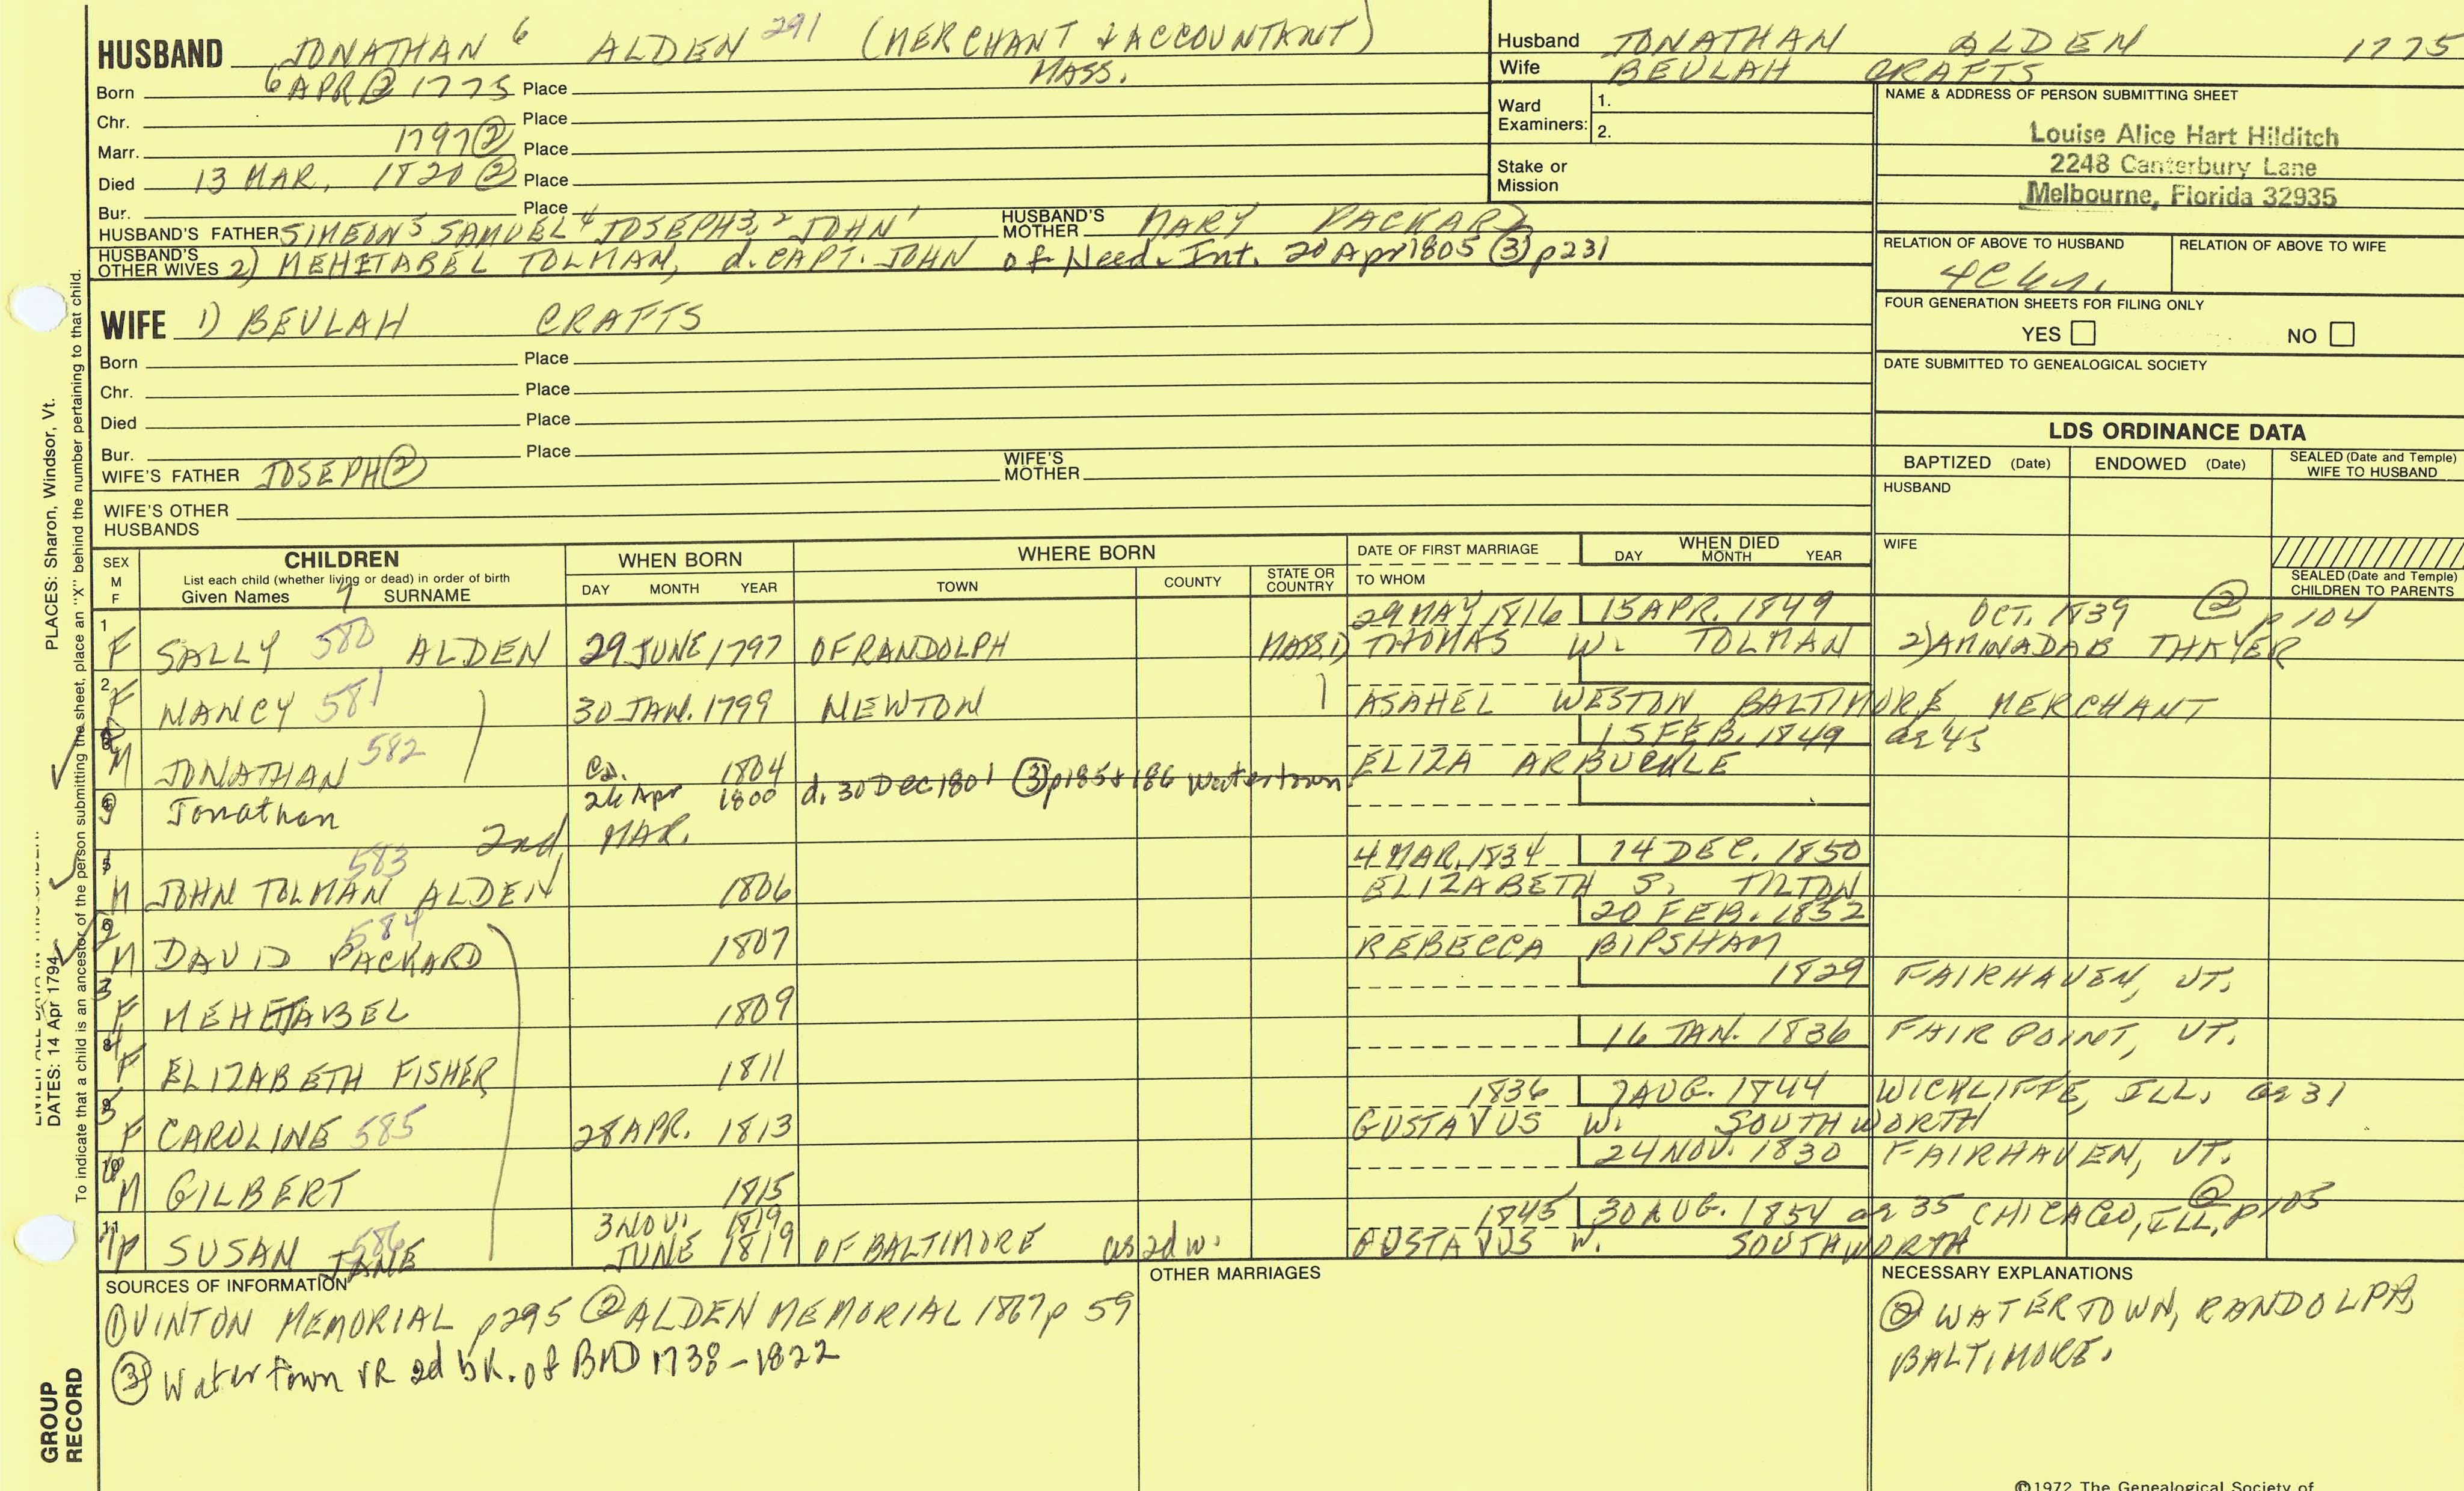 HUSBAND JONATHAN 6 ALDEN 291 (MERCHANT & ACCOUNTANT)
Born 6 APR ② 1775 Place MASS.
Chr. Place
Marr. 1797 ② Place
Died 13 MAR. 1820 ② Place
Bur. Place
HUSBAND'S FATHER SIMEON 5 SAMUEL 4 JOSEPH 3, 2 JOHN 1 HUSBAND'S MOTHER MARY PACKARD
HUSBAND'S OTHER WIVES 2) MEHETABEL TOLMAN, d. CAPT. JOHN of Need. Int. 20 Apr 1805 ③ p231
Husband JONATHAN ALDEN 1775
Wife BEULAH CRAFTS
Ward Examiners: 1.
2.
Stake or Mission
NAME & ADDRESS OF PERSON SUBMITTING SHEET
Louise Alice Hart Hilditch
2248 Canterbury Lane
Melbourne, Florida 32935
RELATION OF ABOVE TO HUSBAND RELATION OF ABOVE TO WIFE
FOUR GENERATION SHEETS FOR FILING ONLY
YES NO
DATE SUBMITTED TO GENEALOGICAL SOCIETY
WIFE 1) BEULAH CRAFTS
Born Place
Chr. Place
Died Place
Bur. Place
WIFE'S FATHER JOSEPH ② WIFE'S MOTHER
WIFE'S OTHER HUSBANDS
LDS ORDINANCE DATA
BAPTIZED (Date) ENDOWED (Date) SEALED (Date and Temple) WIFE TO HUSBAND
HUSBAND
WIFE
SEALED (Date and Temple) CHILDREN TO PARENTS
SEX M F CHILDREN WHEN BORN WHERE BORN DATE OF FIRST MARRIAGE WHEN DIED
List each child (whether living or dead) in order of birth
Given Names 7 SURNAME DAY MONTH YEAR TOWN COUNTY STATE OR COUNTRY TO WHOM DAY MONTH YEAR
29 MAY 1816 15 APR. 1849 OCT. 1839 ② p 104
1 F SALLY 580 ALDEN 29 JUNE 1797 OF RANDOLPH MASS. 1) THOMAS W. TOLMAN 2) AMINADAB THAYER
2 F NANCY 581 30 JAN. 1799 NEWTON ASAHEL WESTON BALTIMORE MERCHANT
15 FEB. 1849 ae 45
M JONATHAN 582 ca. 1804 ELIZA ARBUCKLE
Jonathan 26 Apr 1800 d. 30 Dec 1801 ③ p185 & 186 Watertown
2nd MAR.
4 MAR. 1834 14 DEC. 1850
M JOHN TOLMAN 583 ALDEN 1806 ELIZABETH S. TILTON
20 FEB. 1852
M DAVID PACKARD 584 1807 REBECCA BIPSHAM
1829 FAIRHAVEN, VT.
3 F MEHETABEL 1809
16 JAN. 1836 FAIR POINT, VT.
4 F ELIZABETH FISHER 1811
1836 7 AUG. 1844 WICKLIFFE, ILL. ae 31
5 F CAROLINE 585 28 APR. 1813 GUSTAVUS W. SOUTHWORTH
24 NOV. 1830 FAIRHAVEN, VT.
10 M GILBERT 1815
3 NOV. 1819 1845 30 AUG. 1854 ae 35 CHICAGO, ILL. ② p105
11 SUSAN JANE 586 JUNE 1819 OF BALTIMORE as 2d w. GUSTAVUS W. SOUTHWORTH
SOURCES OF INFORMATION
① VINTON MEMORIAL p295 ② ALDEN MEMORIAL 1867 p 59
③ Watertown VR 2d bk. of BMD 1738-1822
OTHER MARRIAGES
NECESSARY EXPLANATIONS
② WATERTOWN, RANDOLPH,
BALTIMORE.
PLACES: Sharon, Windsor, Vt.
DATES: 14 Apr 1794
To indicate that a child is an ancestor of the person submitting the sheet, place an "X" behind the number pertaining to that child.
GROUP RECORD
©1972 The Genealogical Society of